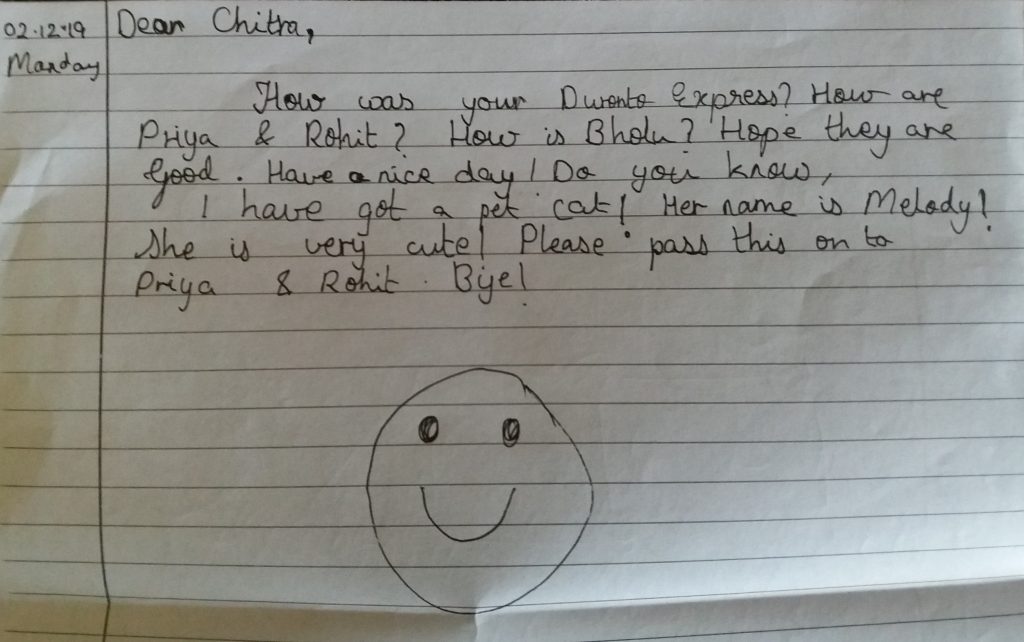 02.12.19
Monday
Dear Chitra,
How was your Duronto Express? How are
Priya & Rohit? How is Bholu? Hope they are
Good. Have a nice day! Do you know,
I have got a pet cat! Her name is Melody!
She is very cute! Please pass this on to
Priya & Rohit. Bye!